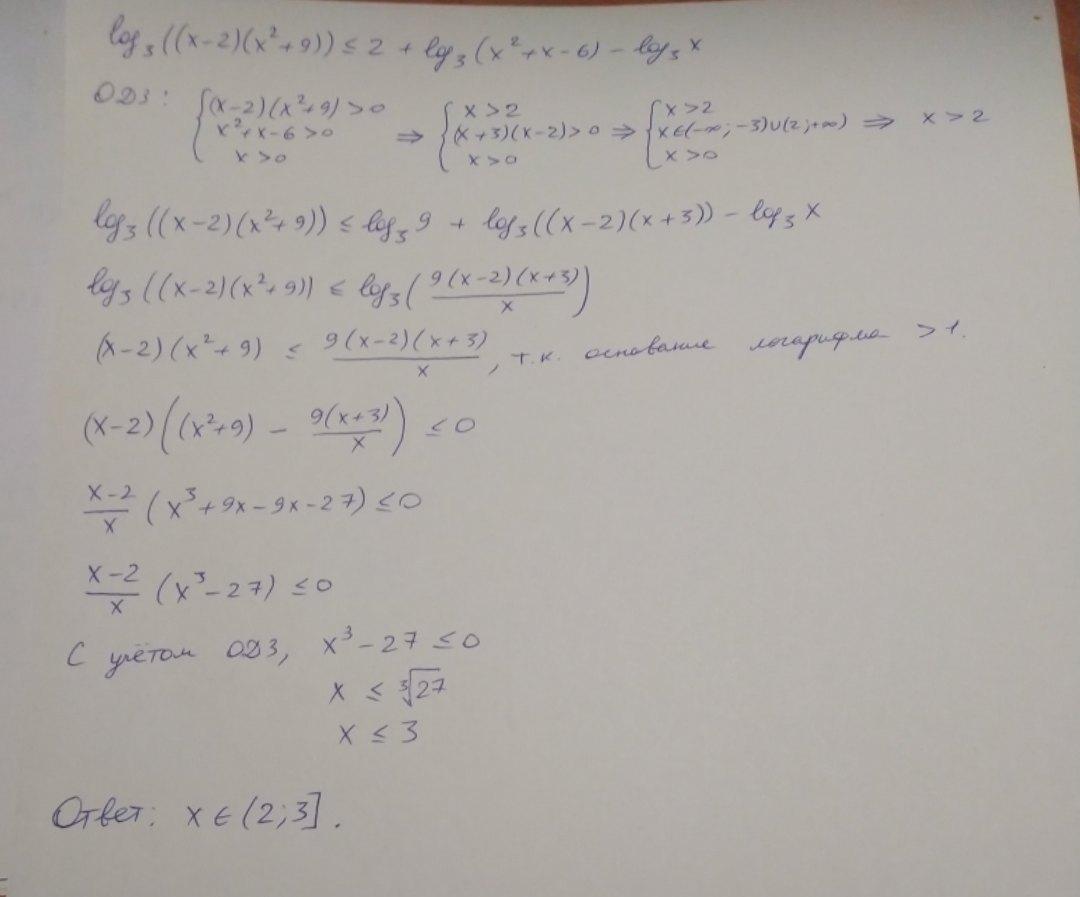 log₃((x-2)(x²+9)) ≤ 2 + log₃(x²+x-6) - log₃x
ОДЗ: { (x-2)(x²+9)>0 ; x²+x-6>0 ; x>0 ⇒ { x>2 ; (x+3)(x-2)>0 ; x>0 ⇒ { x>2 ; x∈(-∞;-3)∪(2;+∞) ; x>0 ⇒ x>2
log₃((x-2)(x²+9)) ≤ log₃9 + log₃((x-2)(x+3)) - log₃x
log₃((x-2)(x²+9)) ≤ log₃(9(x-2)(x+3)/x)
(x-2)(x²+9) ≤ 9(x-2)(x+3)/x, т.к. основание логарифма >1.
(x-2)((x²+9) - 9(x+3)/x) ≤ 0
x-2/x (x³+9x-9x-27) ≤ 0
x-2/x (x³-27) ≤ 0
С учётом ОДЗ, x³-27 ≤ 0
x ≤ ³√27
x ≤ 3
Ответ: x∈(2;3].